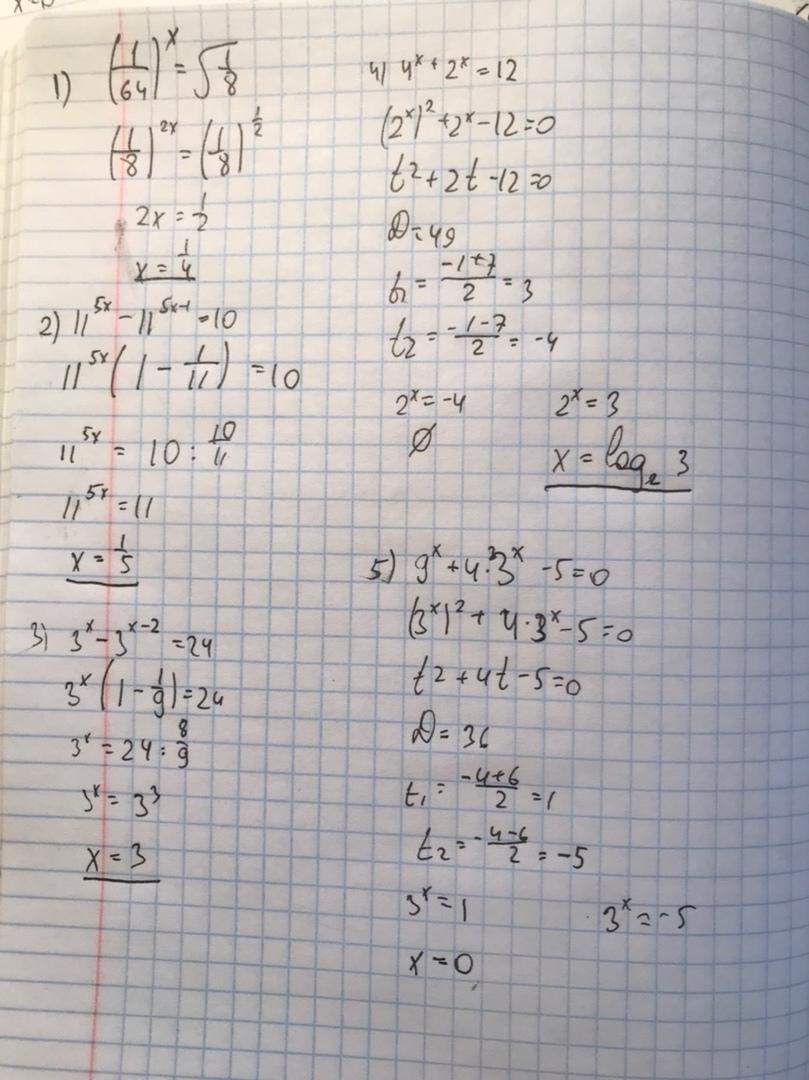 1) (1/64)^x = √(1/8)
(1/8)^2x = (1/8)^1/2
2x = 1/2
x = 1/4
2) 11^5x - 11^5x-1 = 10
11^5x (1 - 1/11) = 10
11^5x = 10 : 10/11
11^5x = 11
x = 1/5
3) 3^x - 3^x-2 = 24
3^x (1 - 1/9) = 24
3^x = 24 : 8/9
3^x = 3^3
x = 3
4) 4^x + 2^x = 12
(2^x)^2 + 2^x - 12 = 0
t^2 + 2t - 12 = 0
D = 49
t1 = (-1+7)/2 = 3
t2 = (-1-7)/2 = -4
2^x = -4 2^x = 3
∅ x = log2 3
5) 9^x + 4·3^x - 5 = 0
(3^x)^2 + 4·3^x - 5 = 0
t2 + 4t - 5 = 0
D = 36
t1 = (-4+6)/2 = 1
t2 = -(4-6)/2 = -5
3^x = 1 3^x = -5
x = 0